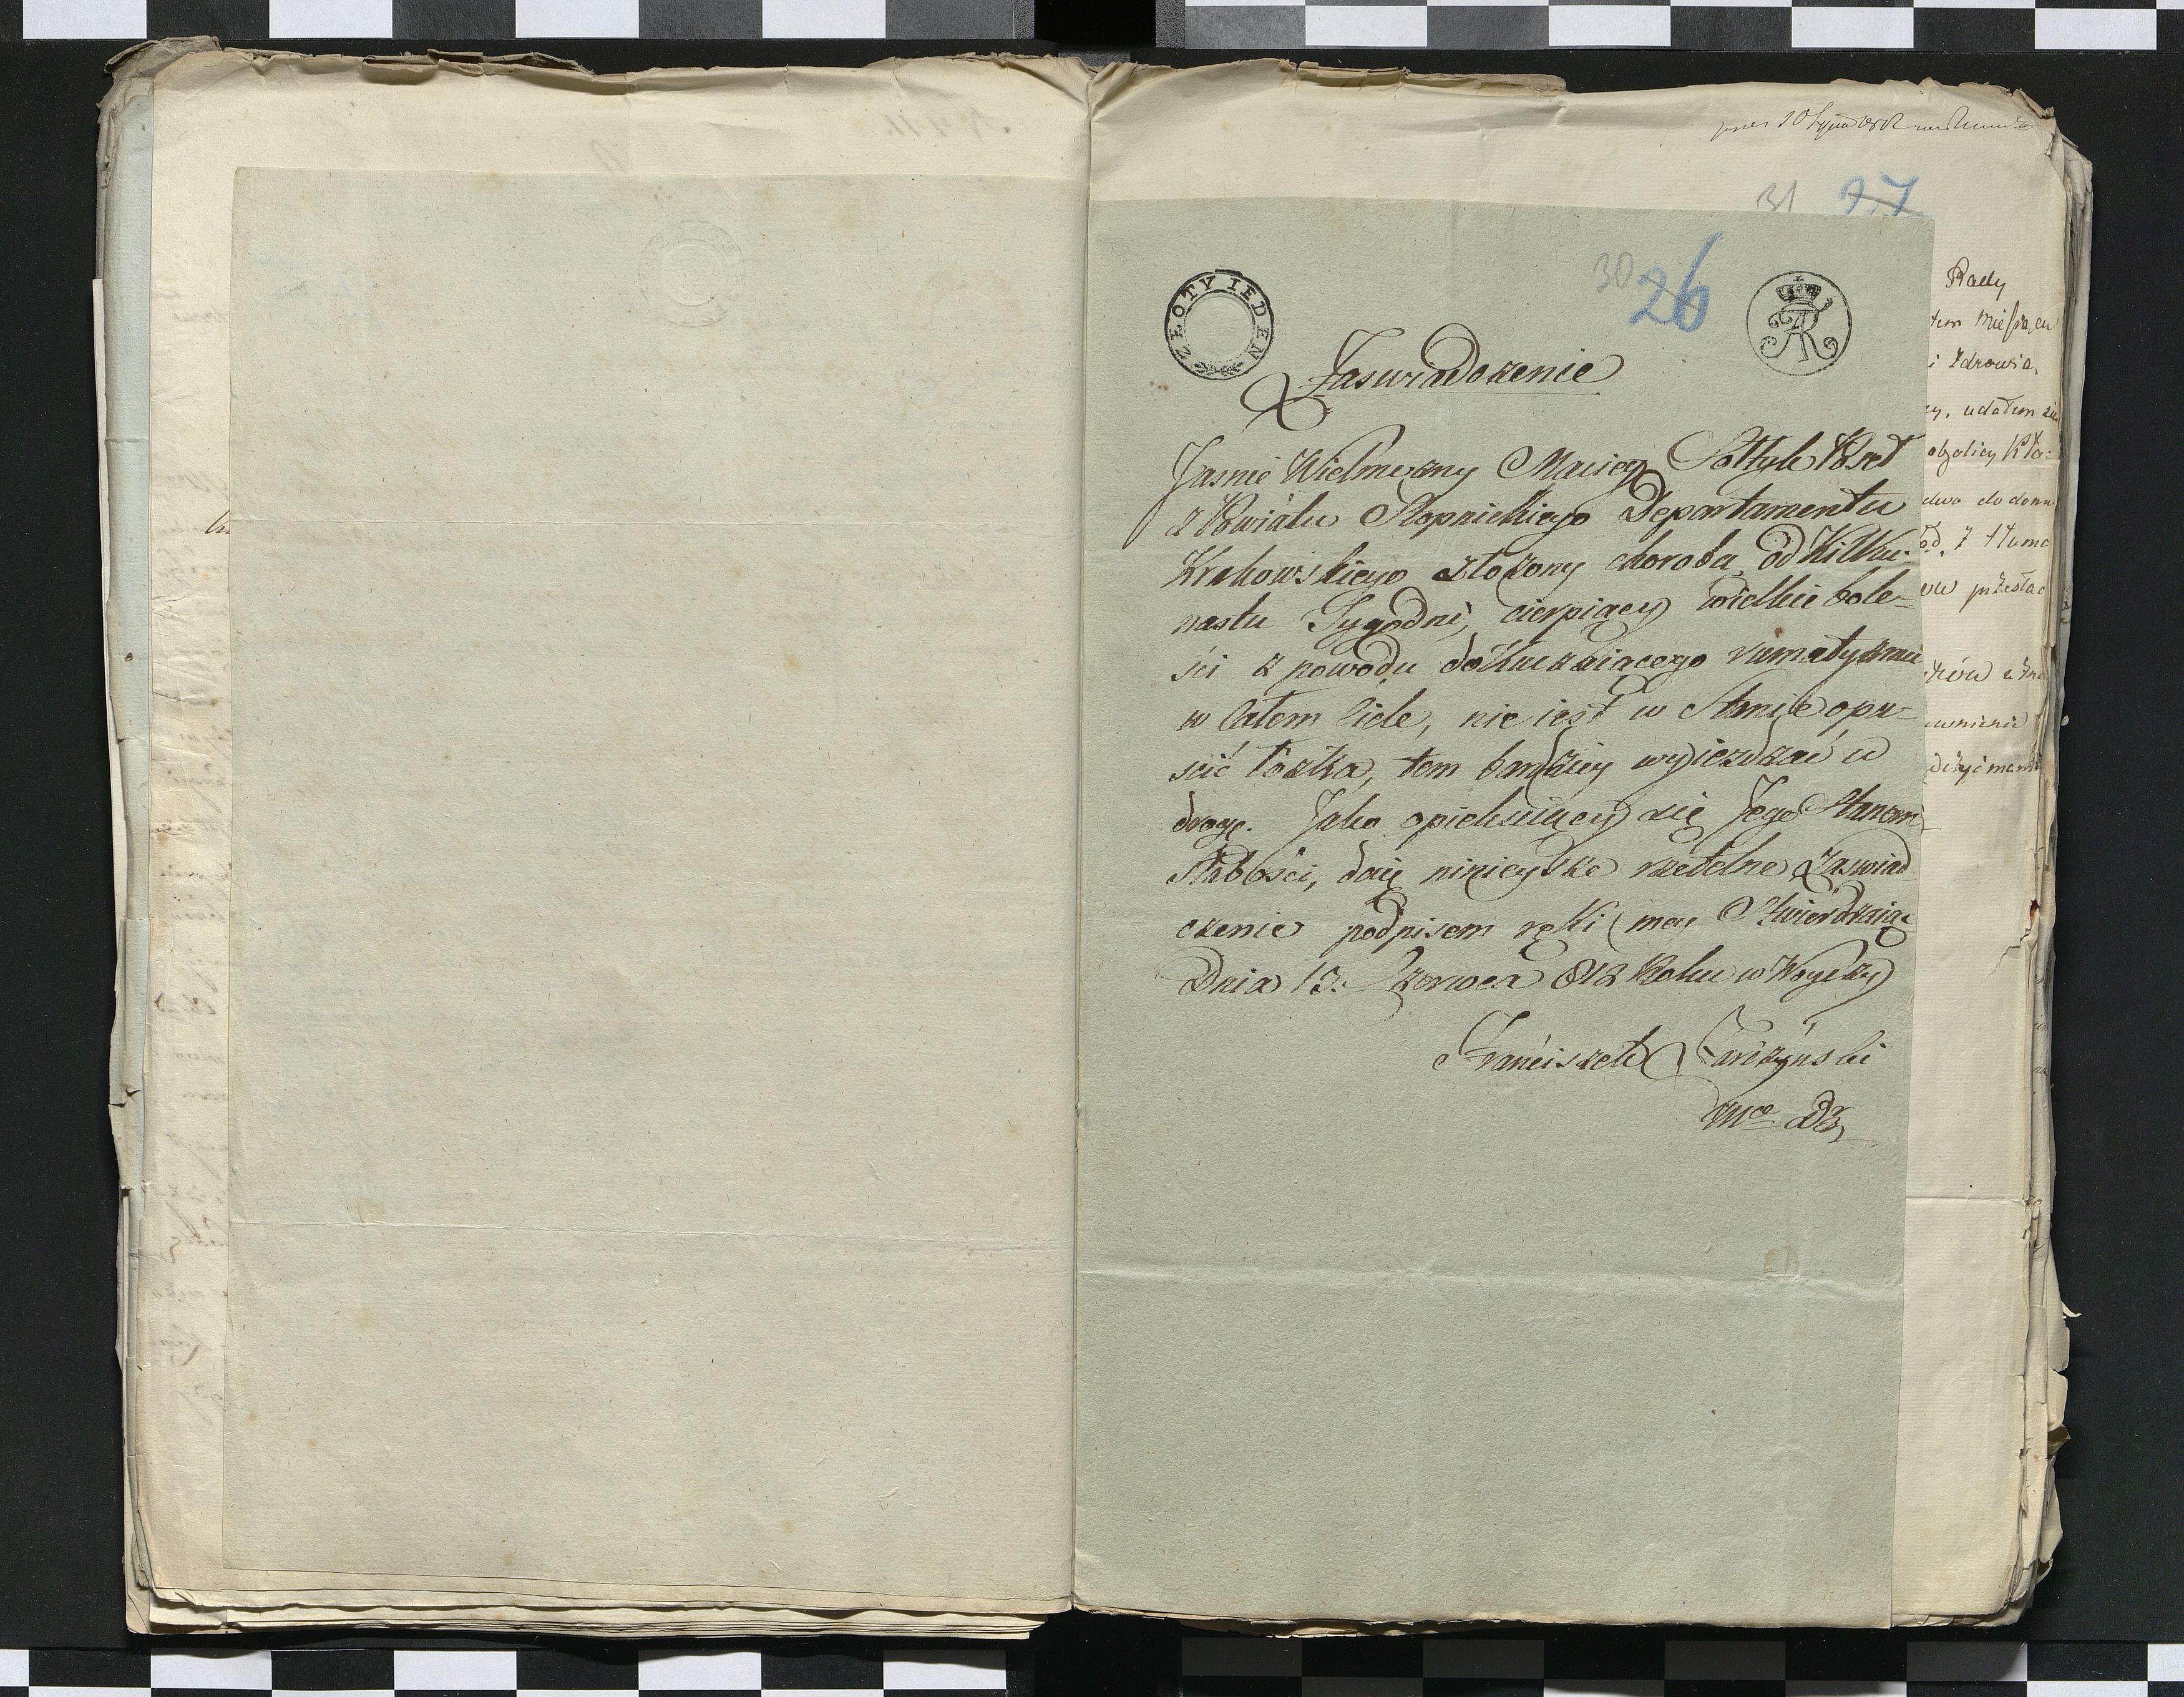 31 27
30 26
ZŁOTY IEDEN
AR
Zaswiadczenie
Jasnie Wielmozny Maciey Sołtyk Poseł
z Powiatu Stopnickiego Departamentu
Krakowskiego złozony chorobą od Kilku-
nastu Tygodni, cierpiący wielkie bole-
ści z powodu dokuczaiącego rumatyzmu
w Całem Ciele, nie iest w Stanie opu-
scić łożka, tem bardziey wyjezdzać w
drogę. Jako opiekuiący się Jego Stanem
Słabości, daię ninieysze rzetelne Zaswiad
czenie podpisem ręki mey Stwierdzaiąc
Dnia 13. Czerwca 812 Roku w
Franciszek
Rady
i zdrowia,
udałem się
okolicy